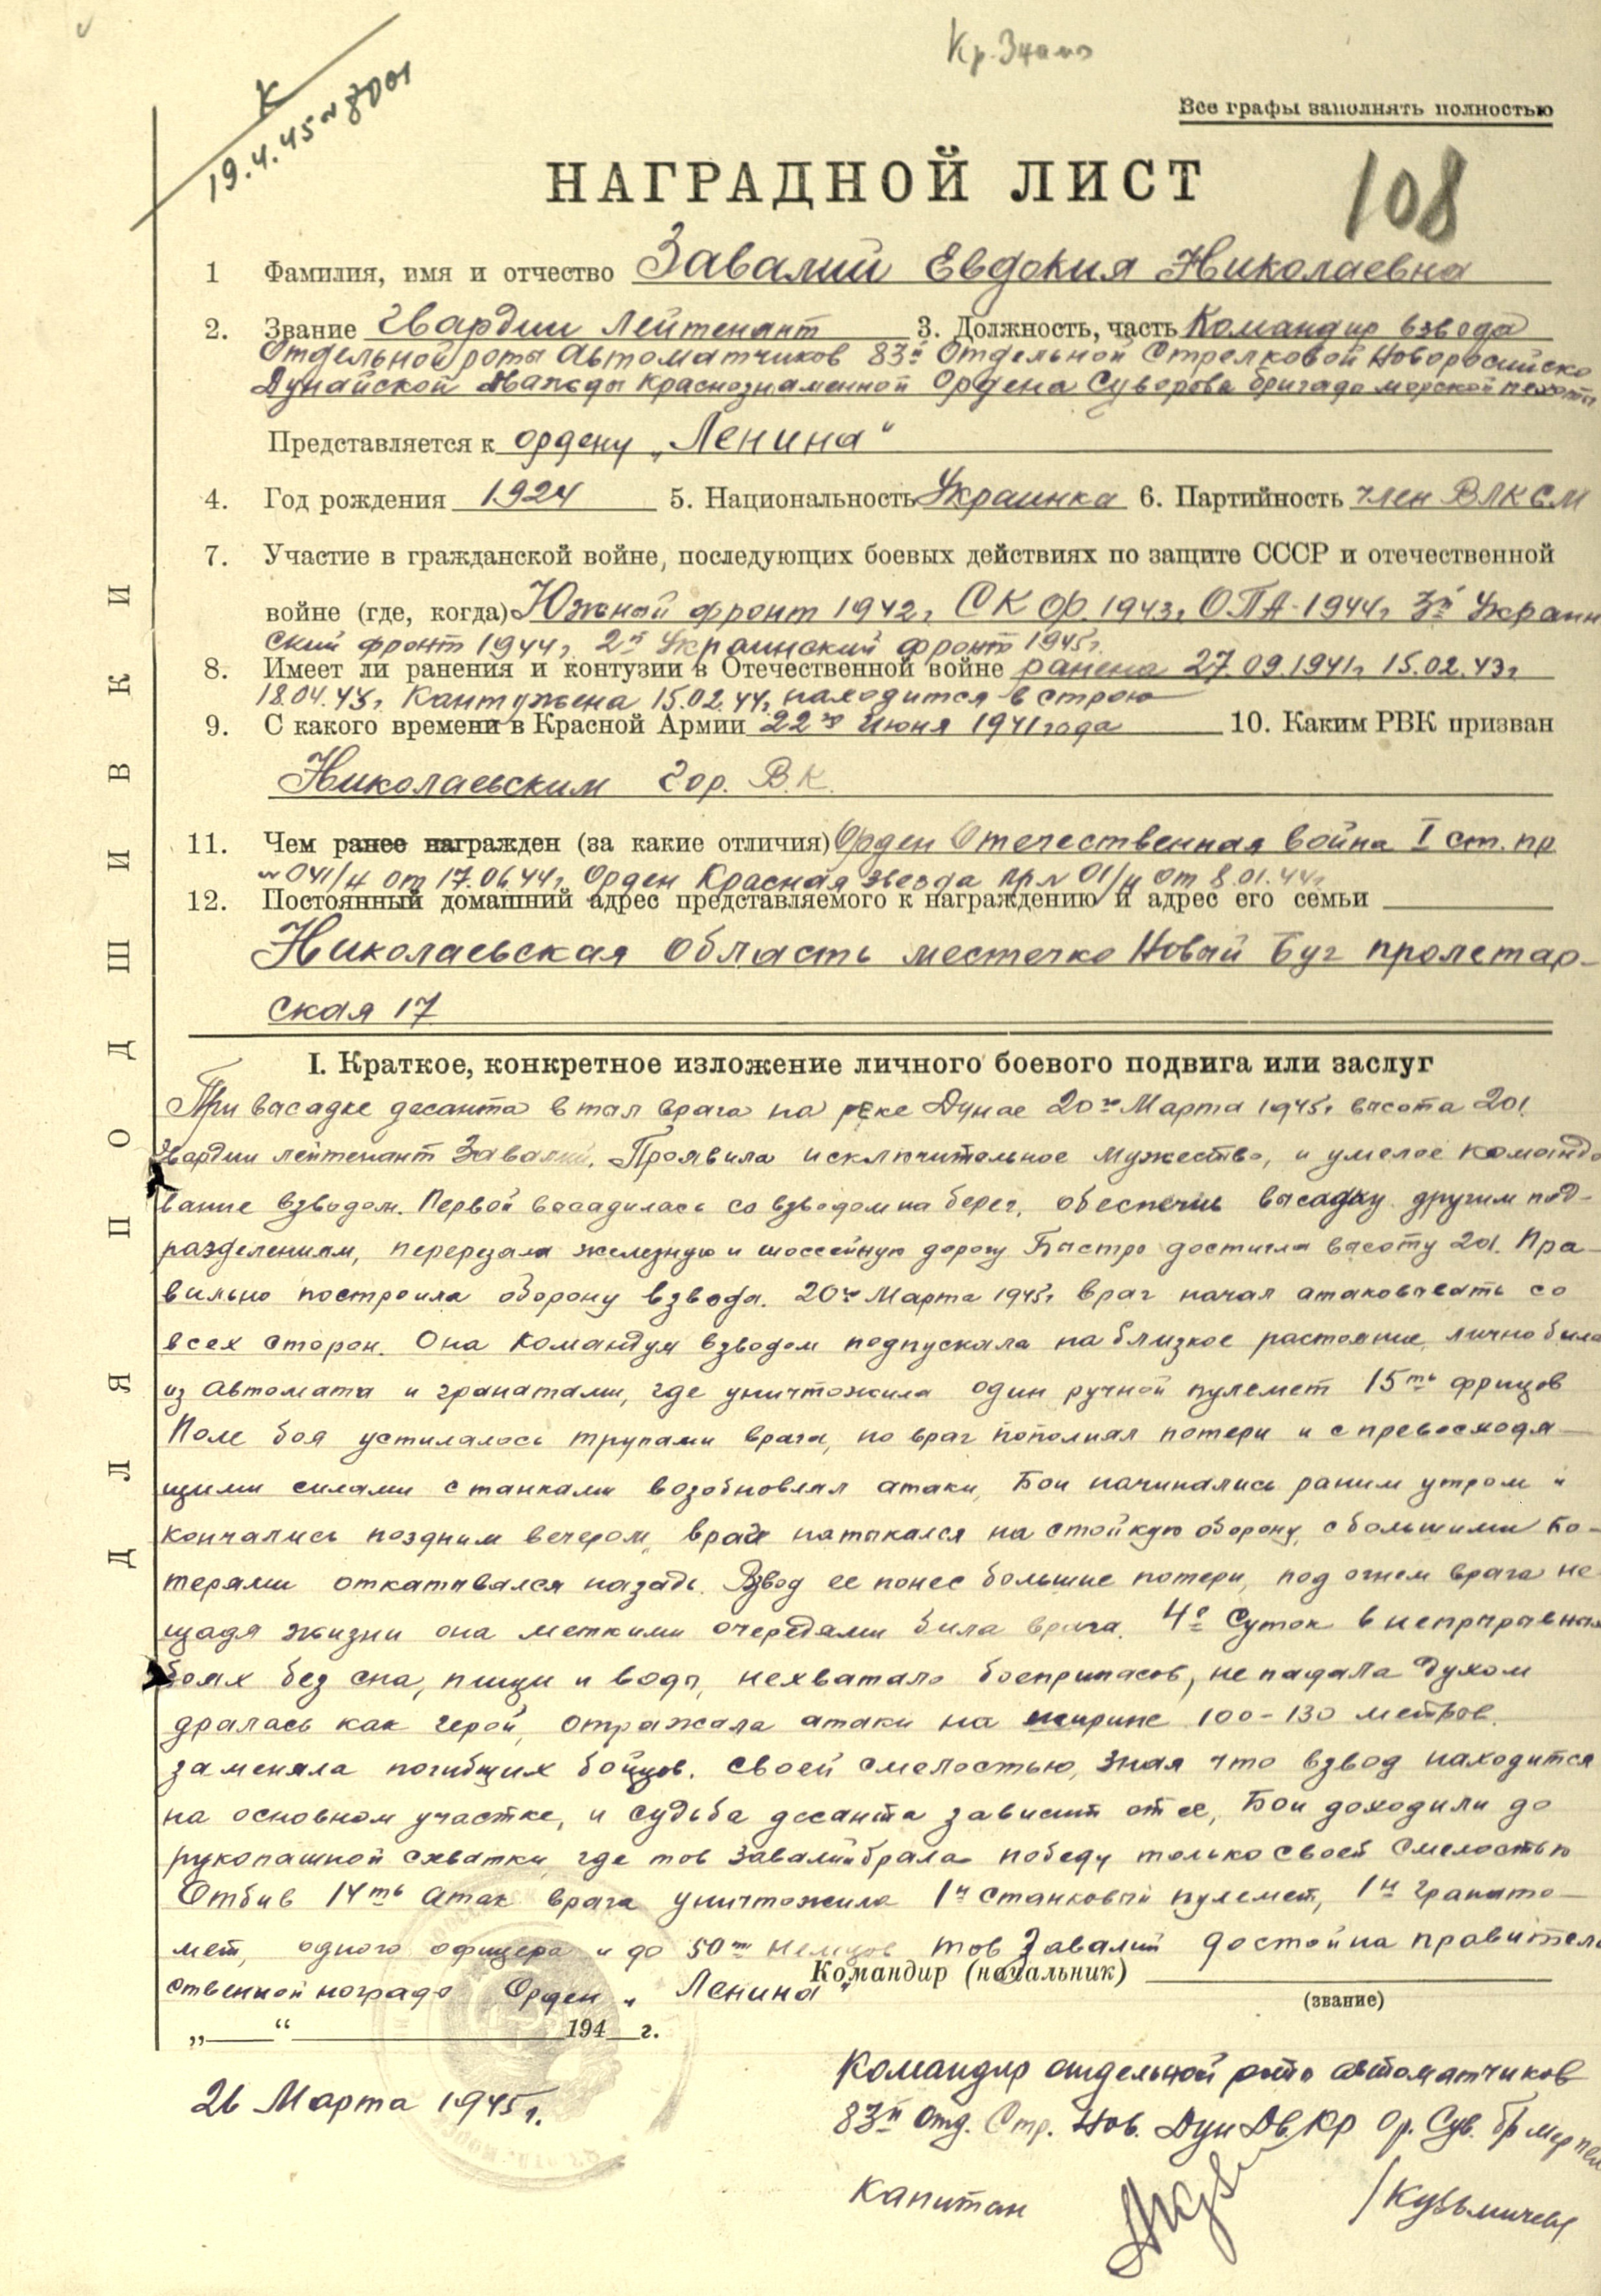 Кр. Знамя
К
19.4.45 № 8001
Все графы заполнять полностью
НАГРАДНОЙ ЛИСТ
108
1 Фамилия, имя и отчество Завалий Евдокия Николаевна
2. Звание Гвардии Лейтенант 3. Должность, часть Командир взвода
Отдельной роты Автоматчиков 83й Отдельной Стрелковой Новоросийско
Дунайской дважды Краснознаменной Ордена Суворова бригады морской пехоты
Представляется к ордену „Ленина"
4. Год рождения 1924 5. Национальность Украинка 6. Партийность член ВЛКСМ
7. Участие в гражданской войне, последующих боевых действиях по защите СССР и отечественной
войне (где, когда) Южной фронт 1942г СКФ. 1943г ОПА-1944г 3й Украин
ский фронт 1944г. 2й Украинский фронт 1945г.
8. Имеет ли ранения и контузии в Отечественной войне ранена 27.09.1941г 15.02.43г
18.04.43г Кантужена 15.02.44г находится в строю
9. С какого времени в Красной Армии 22го Июня 1941 года 10. Каким РВК призван
Николаевским Гор. В.К.
11. Чем ранее награжден (за какие отличия) Орден Отечественная война I ст. пр
№ 041/н от 17.06.44г Орден Красная звезда пр № 01/н от 8.01.44г
12. Постоянный домашний адрес представляемого к награждению и адрес его семьи
Николаевская область местечко Новый Буг пролетар-
ская 17
I. Краткое, конкретное изложение личного боевого подвига или заслуг
При васадке десанта в тал врага на реке Дунае 20го Марта 1945г васота 201
Гвардии лейтенант Завалий. Проявила исключительное мужество, и умелое командо
вание взводом. Первой васадилась со взводом на берег, обеспечив васадку другим под-
разделениям, перерезала железную и шоссейную дорогу Быстро достигла васоту 201. Пра-
вильно построила оборону взвода. 20го Марта 1945г враг начал атаковавать со
всех сторон. Она командуя взводом подпускала на близкое растояние, лично била
из автомата и гранатами, где уничтожила один ручной пулемет 15ть фрицов
Поле боя устилалось трупами врага, но враг пополнял потери и с превосходя-
щими силами с танками возобновлял атаки, Бои начинались раним утром и
кончались поздним вечером, враг натыкался на стойкую оборону, с большими по-
терями откатывался назадь. Взвод ее понес большие потери, под огнем врага не
щадя жизни она меткими очередями била врага. 4е Суток в непрерывных
боях без сна, пищи и воды, нехватало боеприпасов, не падала Духом
дралась как герой, отражала атаки на ширине 100-130 метров.
заменяла погибщих бойцов. своей смелостью, Зная что взвод находится
на основном участке, и судьба десанта зависит от ее, Бои доходили до
рукопашной схватки, где тов Завалий брала победу только своей смелостью
Отбив 14ть Атак врага уничтожила 1н станковый пулемет, 1н гранато-
мет, одного офицера и до 50ти немцов тов Завалий достойна правитель
ственной награда Орден „Ленина"
Командир (начальник)
(звание)
„ “ 194 г.
26 Марта 1945г.
Командир отдельной роты автоматчиков
83й Отд. Стр. Нов. Дун Дв. Кр Ор. Сув. бр мор пех
Капитан /Кузьмичев
ДЛЯ ПОДШИВКИ